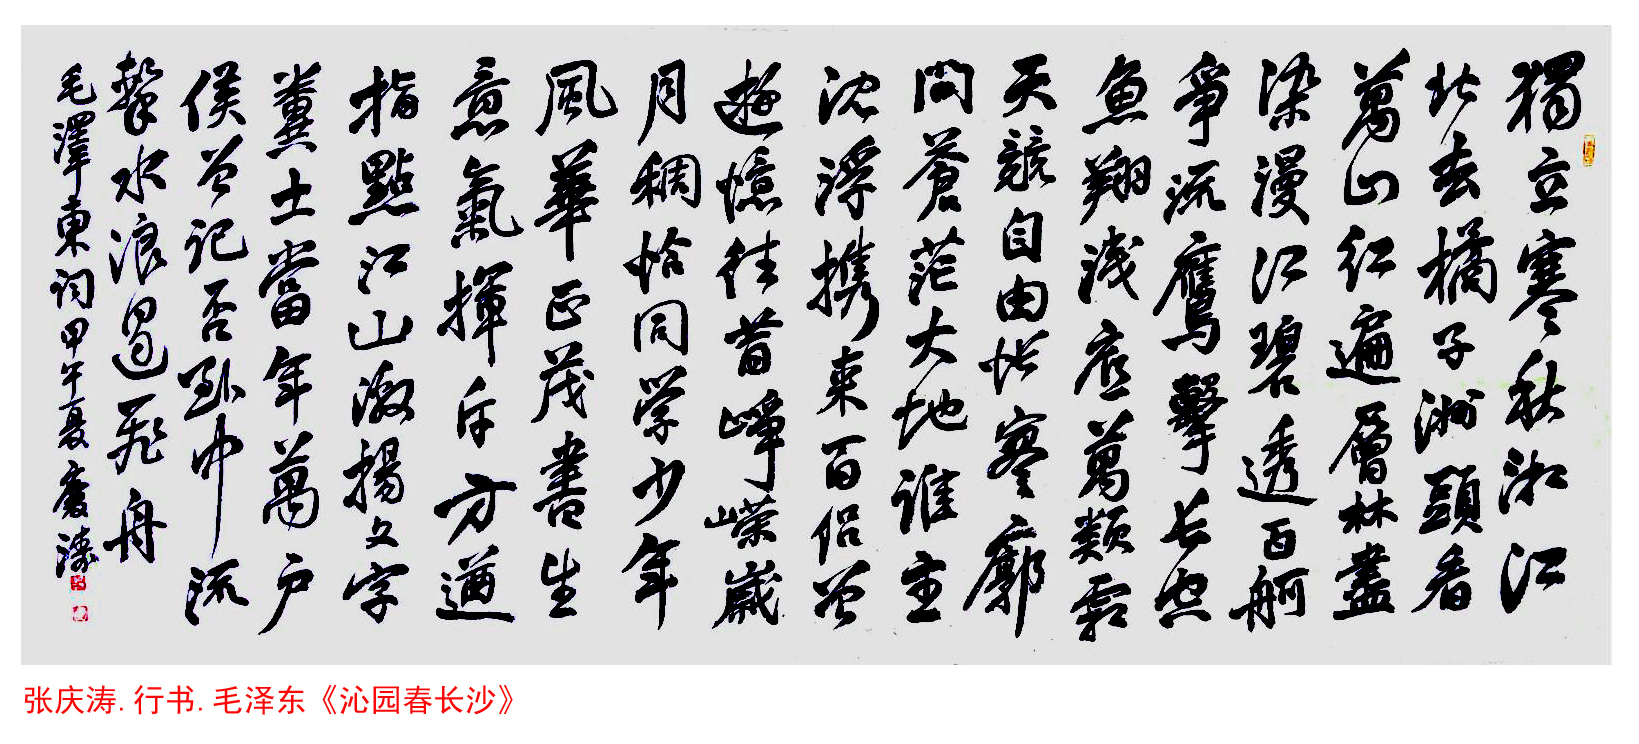 獨立寒秋湘江
北去橘子洲頭看
萬山紅遍層林盡
染漫江碧透百舸
爭流鷹擊長空
魚翔淺底萬類霜
天競自由悵寥廓
問蒼茫大地誰主
沈浮携來百侣曾
遊憶往昔崢嶸歲
月稠恰同學少年
風華正茂書生
意氣揮斥方遒
指點江山激揚文字
糞土當年萬户
侯曾記否到中流
擊水浪遏飛舟
毛澤東詞甲午夏慶濤
张庆涛.行书.毛泽东《沁园春长沙》